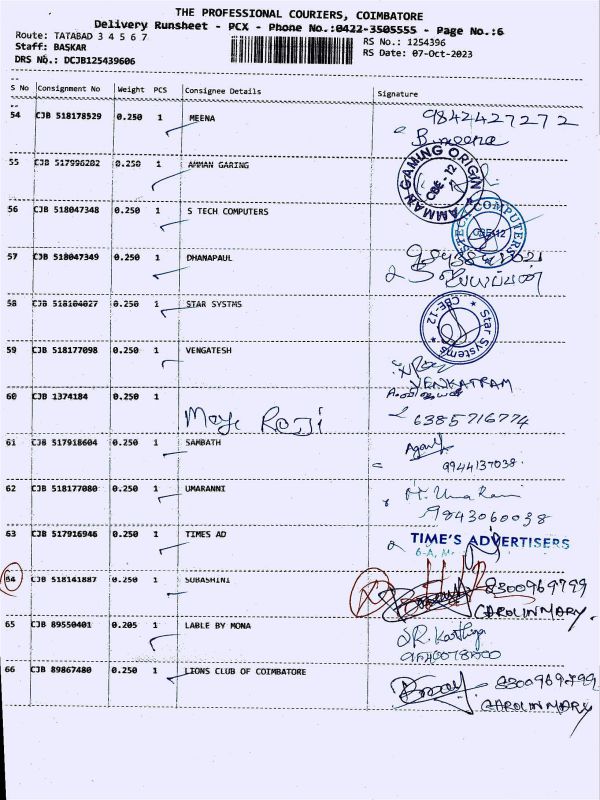 THE PROFESSIONAL COURIERS, COIMBATORE
Delivery Runsheet - PCX - Phone No.:0422-3505555 - Page No.:6
Route: TATABAD 3 4 5 6 7
RS No.: 1254396
Staff: BASKAR
RS Date: 07-Oct-2023
DRS No.: DCJB125439606
S No Consignment No Weight PCS Consignee Details Signature
54 CJB 518178529 0.250 1 MEENA 9842427272
B.meena
55 CJB 517996202 0.250 1 AMMAN GARING
AMMAN GAMING ORIGIN CBE-12
56 CJB 518047348 0.250 1 S TECH COMPUTERS
COMPUTERS CBE-12
57 CJB 518047349 0.250 1 DHANAPAUL
58 CJB 518104027 0.250 1 STAR SYSTMS
CBE-12 Star Systems
59 CJB 518177098 0.250 1 VENGATESH
VENKATRAM
60 CJB 1374184 0.250 1
6385716774
61 CJB 517918604 0.250 1 SAMBATH
9944137038
62 CJB 518177080 0.250 1 UMARANNI M. Uma Rani
9843060038
63 CJB 517916946 0.250 1 TIMES AD TIME'S ADVERTISERS
6-A, M.
64 CJB 518141887 0.250 1 SUBASHINI 8300969799
CAROLINMARY.
65 CJB 89550401 0.205 1 LABLE BY MONA
66 CJB 89867480 0.250 1 LIONS CLUB OF COIMBATORE 8300969799
CAROLINMARY